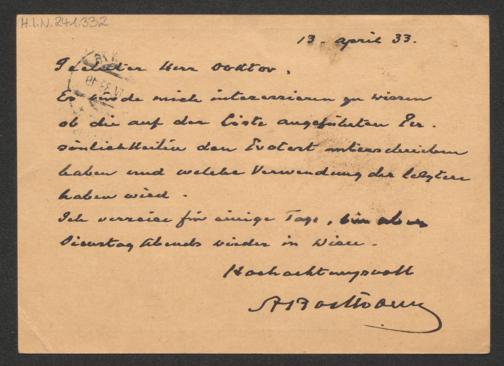 H.I.N. 241.332
13. april 33.
Geehrter Herr Doktor,
Es würde mich interessieren zu wissen
ob die auf der Liste angeführten Per-
sönlichkeiten den unterschrieben
haben und welche Verwendung der letztere
haben wird.
Ich verreise für einige Tage, bin aber
Dienstag Abends wieder in Wien.
Hochachtungsvoll